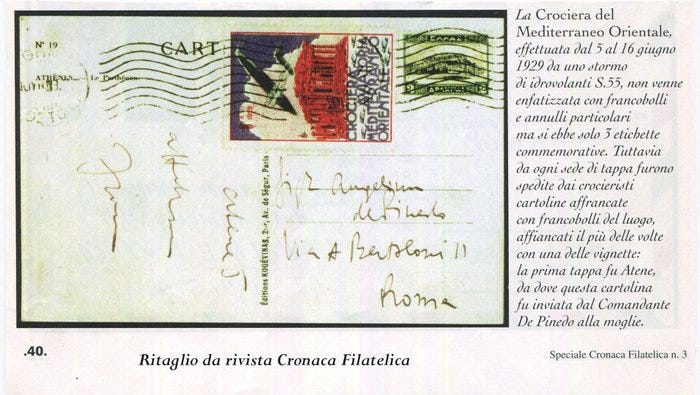 N° 19
CART
ATHÈNES... Le Parthénon.
CROCIERA AEREA
MEDITERRANEO
ORIENTALE
2
Éditions KOGÉVINAS, 2ter, Av. de Ségur, Paris
Angelina
de Pinedo
Via A Bertoloni 11
Roma
La Crociera del
Mediterraneo Orientale,
effettuata dal 5 al 16 giugno
1929 da uno stormo
di idrovolanti S.55, non venne
enfatizzata con francobolli
e annulli particolari
ma si ebbe solo 3 etichette
commemorative. Tuttavia
da ogni sede di tappa furono
spedite dai crocieristi
cartoline affrancate
con francobolli del luogo,
affiancati il più delle volte
con una delle vignette:
la prima tappa fu Atene,
da dove questa cartolina
fu inviata dal Comandante
De Pinedo alla moglie.
.40.
Ritaglio da rivista Cronaca Filatelica
Speciale Cronaca Filatelica n. 3